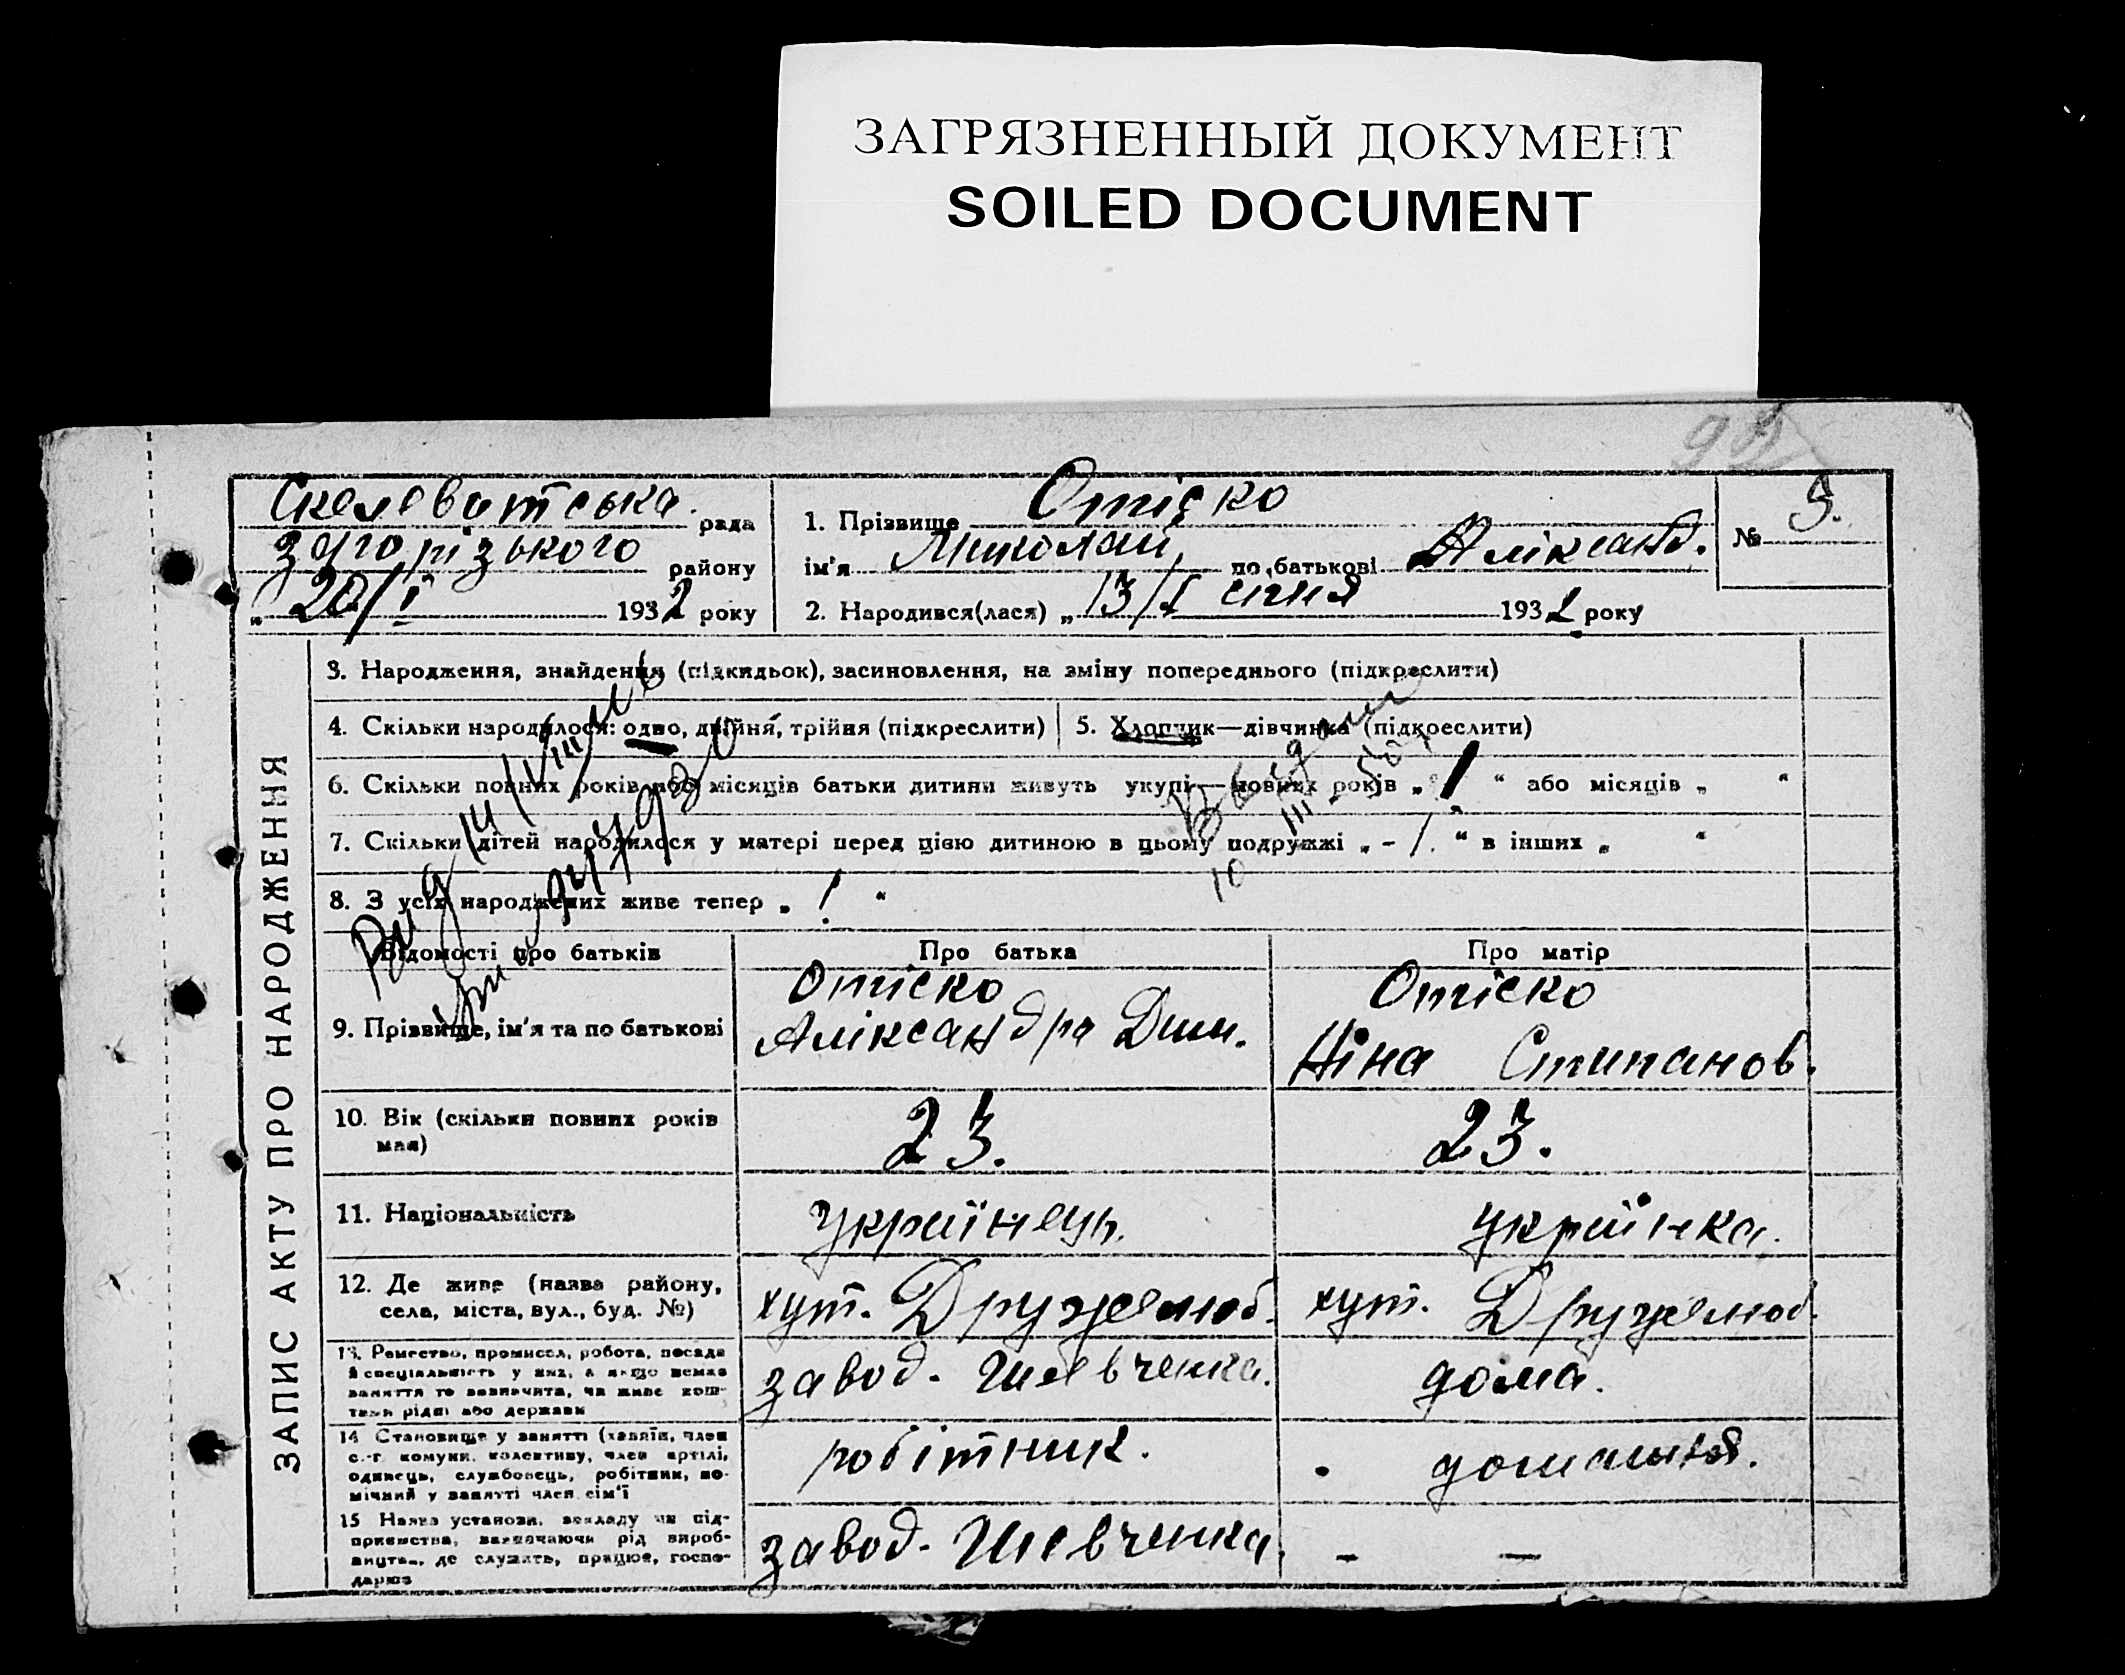 ЗАГРЯЗНЕННЫЙ ДОКУМЕНТ
SOILED DOCUMENT
92
Скелеватська рада
району
„ 20/I 1932 року
1. Прізвище Отіско
ім'я Миколай по батькові Аліксанд.
2. Народився(лася) „ 13/I січня 1932 року
№ 5.
ЗАПИС АКТУ ПРО НАРОДЖЕННЯ
3. Народження, знайдення (підкидьок), засиновлення, на зміну попереднього (підкреслити)
4. Скільки народилося: одно, двійня, трійня (підкреслити)
5. Хлопчик—дівчинка (підкреслити)
6. Скільки повних років або місяців батьки дитини живуть укупі—повних років „ 1 “ або місяців „ “
7. Скільки дітей народилося у матері перед цією дитиною в цьому подружжі „ - 1. “ в інших „ “
8. З усіх народжених живе тепер „ 1 “
Відомості про батьків
Про батька
Про матір
9. Прізвище, ім'я та по батькові
Отіско
Аліксандра Дми.
Отіско
Ніна Стипанов.
10. Вік (скільки повних років
має)
23.
23.
11. Національність
українець.
українка.
12. Де живе (назва району,
села, міста, вул., буд. №)
хут. Дружелюб.
хут. Дружелюб.
13. Ремество, промисел, робота, посада
й спеціальність у них, а якщо немає
заняття то зазначити, чи живе кош-
тами рідні або держави
завод. Шевченка.
дома.
14 Становище у занятті (хазяїн, член
с.-г. комуни, колективу, член артілі,
одинець, службовець, робітник, по-
мічний у занятті член сім'ї
робітник.
домашня.
15 Назва установи, закладу чи під-
приємства, зазначаючи рід вироб-
ництва, де служить, працює, госпо-
дарює
завод. Шевченка.
- —